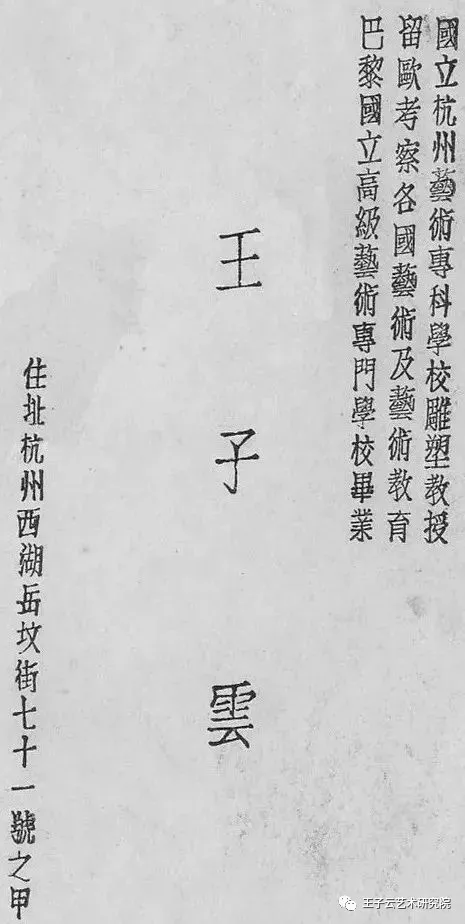 國立杭州藝術專科學校雕塑教授
留歐考察各國藝術及藝術教育
巴黎國立高級藝術專門學校畢業
王子雲
住址杭州西湖岳坟街七十一號之甲
王子云艺术研究院